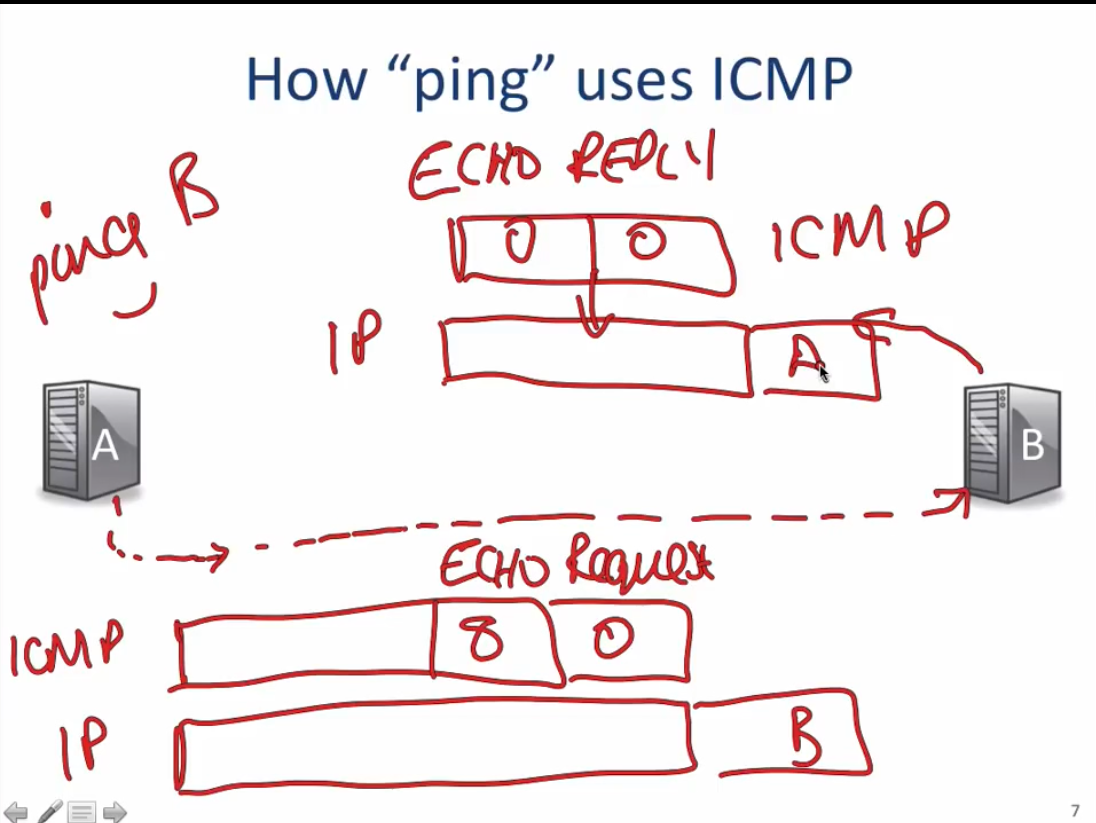 How “ping” uses ICMP
ECHO REPLY
ping B
0 0 ICMP
IP A
A B
ECHO Request
ICMP 8 0
IP B
7